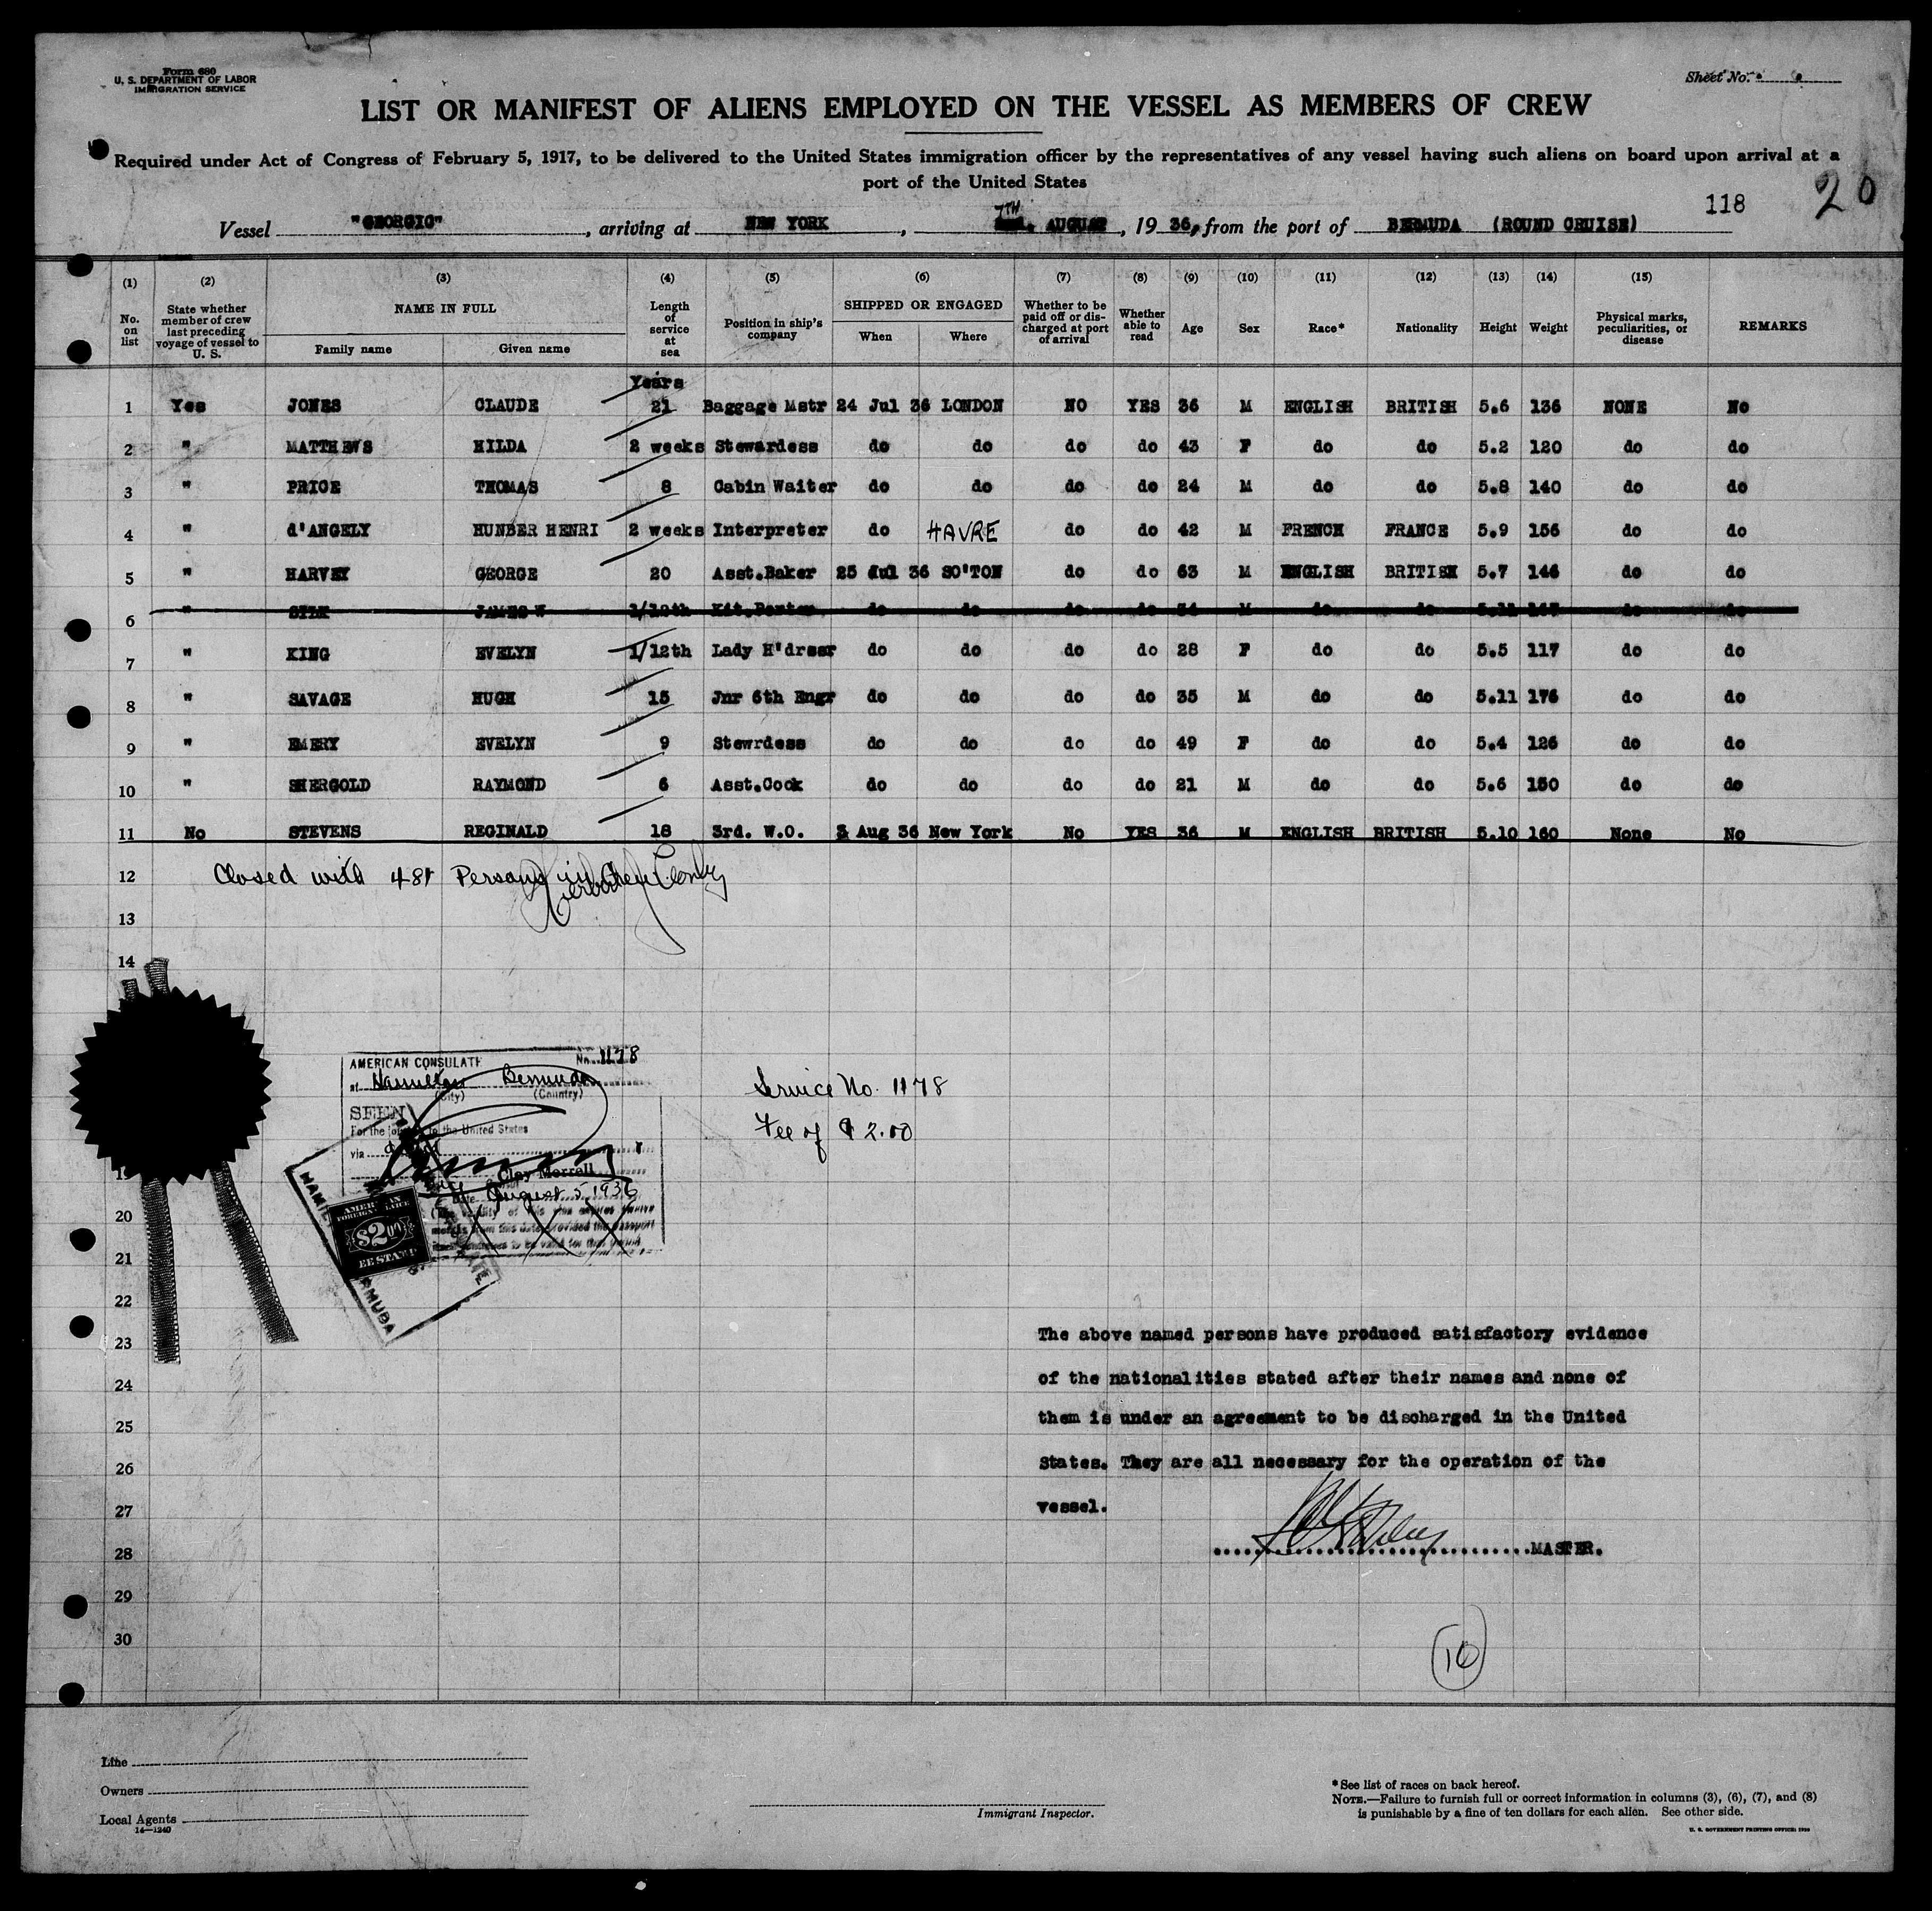 Form 680
U. S. DEPARTMENT OF LABOR
IMMIGRATION SERVICE
Sheet No.
LIST OR MANIFEST OF ALIENS EMPLOYED ON THE VESSEL AS MEMBERS OF CREW
Required under Act of Congress of February 5, 1917, to be delivered to the United States immigration officer by the representatives of any vessel having such aliens on board upon arrival at a
port of the United States
118 20
Vessel "GEORGIC", arriving at NEW YORK, 7TH AUGUST, 1936, from the port of BERMUDA (ROUND CRUISE)
(1) (2) (3) (4) (5) (6) (7) (8) (9) (10) (11) (12) (13) (14) (15)
No. on list State whether member of crew last preceding voyage of vessel to U. S. NAME IN FULL Family name Given name Length of service at sea Position in ship's company SHIPPED OR ENGAGED When Where Whether to be paid off or discharged at port of arrival Whether able to read Age Sex Race* Nationality Height Weight Physical marks, peculiarities, or disease REMARKS
Years
1 Yes JONES CLAUDE 21 Baggage Mstr 24 Jul 36 LONDON NO YES 36 M ENGLISH BRITISH 5.6 136 NONE No
2 " MATTHEWS HILDA 2 weeks Stewardess do do do do 43 F do do 5.2 120 do do
3 " PRICE THOMAS 8 Cabin Waiter do do do do 24 M do do 5.8 140 do do
4 " d'ANGELY HUNBER HENRI 2 weeks Interpreter do HAVRE do do 42 M FRENCH FRANCE 5.9 156 do do
5 " HARVEY GEORGE 20 Asst.Baker 25 Jul 36 SO'TON do do 63 M ENGLISH BRITISH 5.7 146 do do
6 " SILK JAMES W 1/12th Kit.Porter do do do do M do do do do
7 " KING EVELYN 1/12th Lady H'drssr do do do do 28 F do do 5.5 117 do do
8 " SAVAGE HUGH 15 Jnr 6th Engr do do do do 35 M do do 5.11 176 do do
9 " EMERY EVELYN 9 Stewrdess do do do do 49 F do do 5.4 126 do do
10 " SHERGOLD RAYMOND 6 Asst.Cook do do do do 21 M do do 5.6 150 do do
11 No STEVENS REGINALD 18 3rd. W.O. 3 Aug 36 New York No YES 36 M ENGLISH BRITISH 5.10 160 None No
12 Closed with 481 Persons in Crew
13
14
AMERICAN CONSULATE No. 1178
at Hamilton Bermuda
(City) (Country)
SEEN
For the journey to the United States
via
Clay Merrell
Date August 5, 1936
AMERICAN FOREIGN SERVICE
$2
FEE STAMP
Service No. 1178
Fee of $ 2.00
20
21
22
23
24
25
26
27
28
29
30
The above named persons have produced satisfactory evidence
of the nationalities stated after their names and none of
them is under an agreement to be discharged in the United
States. They are all necessary for the operation of the
vessel.
MASTER.
10
Line
Owners
Local Agents
14—1240
Immigrant Inspector.
*See list of races on back hereof.
NOTE.—Failure to furnish full or correct information in columns (3), (6), (7), and (8)
is punishable by a fine of ten dollars for each alien. See other side.